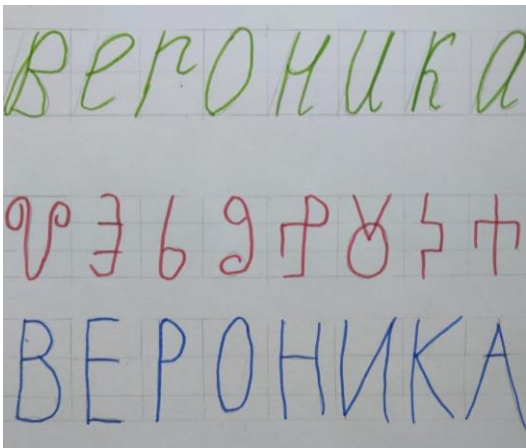 Вероника
ⰂⰅⰓⰑⰐⰋⰍⰀ
ВЕРОНИКА